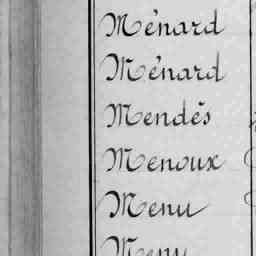 Ménard
Ménard
Mendès
Menoux
Menu
Meny